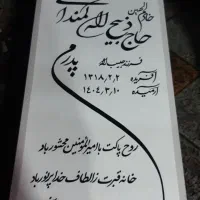 خادم الحسین
حاج ذبیح الله کندا
پدرم
فرزند حبیب الله
آفریده ۱۳۱۸,۲,۲
آرمیده ۱۴۰۴,۳,۱۰
روح پاکت با امیرالمومنین محشور باد
خانه قبرت ز الطاف خدا پرنور باد